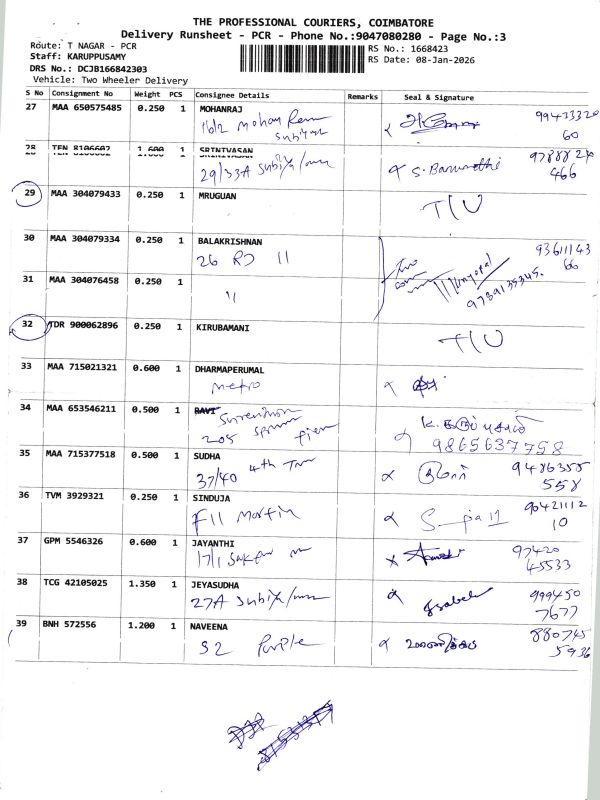 THE PROFESSIONAL COURIERS, COIMBATORE
Delivery Runsheet - PCR - Phone No.:9047080280 - Page No.:3
Route: T NAGAR - PCR
RS No.: 1668423
Staff: KARUPPUSAMY
RS Date: 08-Jan-2026
DRS No.: DCJB166842303
Vehicle: Two Wheeler Delivery
S No Consignment No Weight PCS Consignee Details Remarks Seal & Signature
27 MAA 650575485 0.250 1 MOHANRAJ
16/2 Mohan
60
28 TEN 8106602 1.600 1 SRINIVASAN
29/33A Subiya
466
29 MAA 304079433 0.250 1 MRUGUAN
T/U
30 MAA 304079334 0.250 1 BALAKRISHNAN
26 RJ 11
93611143
66
31 MAA 304076458 0.250 1
"
9789135345
32 TDR 900062896 0.250 1 KIRUBAMANI
T/U
33 MAA 715021321 0.600 1 DHARMAPERUMAL
metro
34 MAA 653546211 0.500 1 RAVI
205
9865637758
35 MAA 715377518 0.500 1 SUDHA
37/40 4th
9486358
558
36 TVM 3929321 0.250 1 SINDUJA
F11 Martin
90421112
10
37 GPM 5546326 0.600 1 JAYANTHI
17/1
97420
45533
38 TCG 42105025 1.350 1 JEYASUDHA
27A Subiya
999450
7677
39 BNH 572556 1.200 1 NAVEENA
S2 Purple
880745
5936